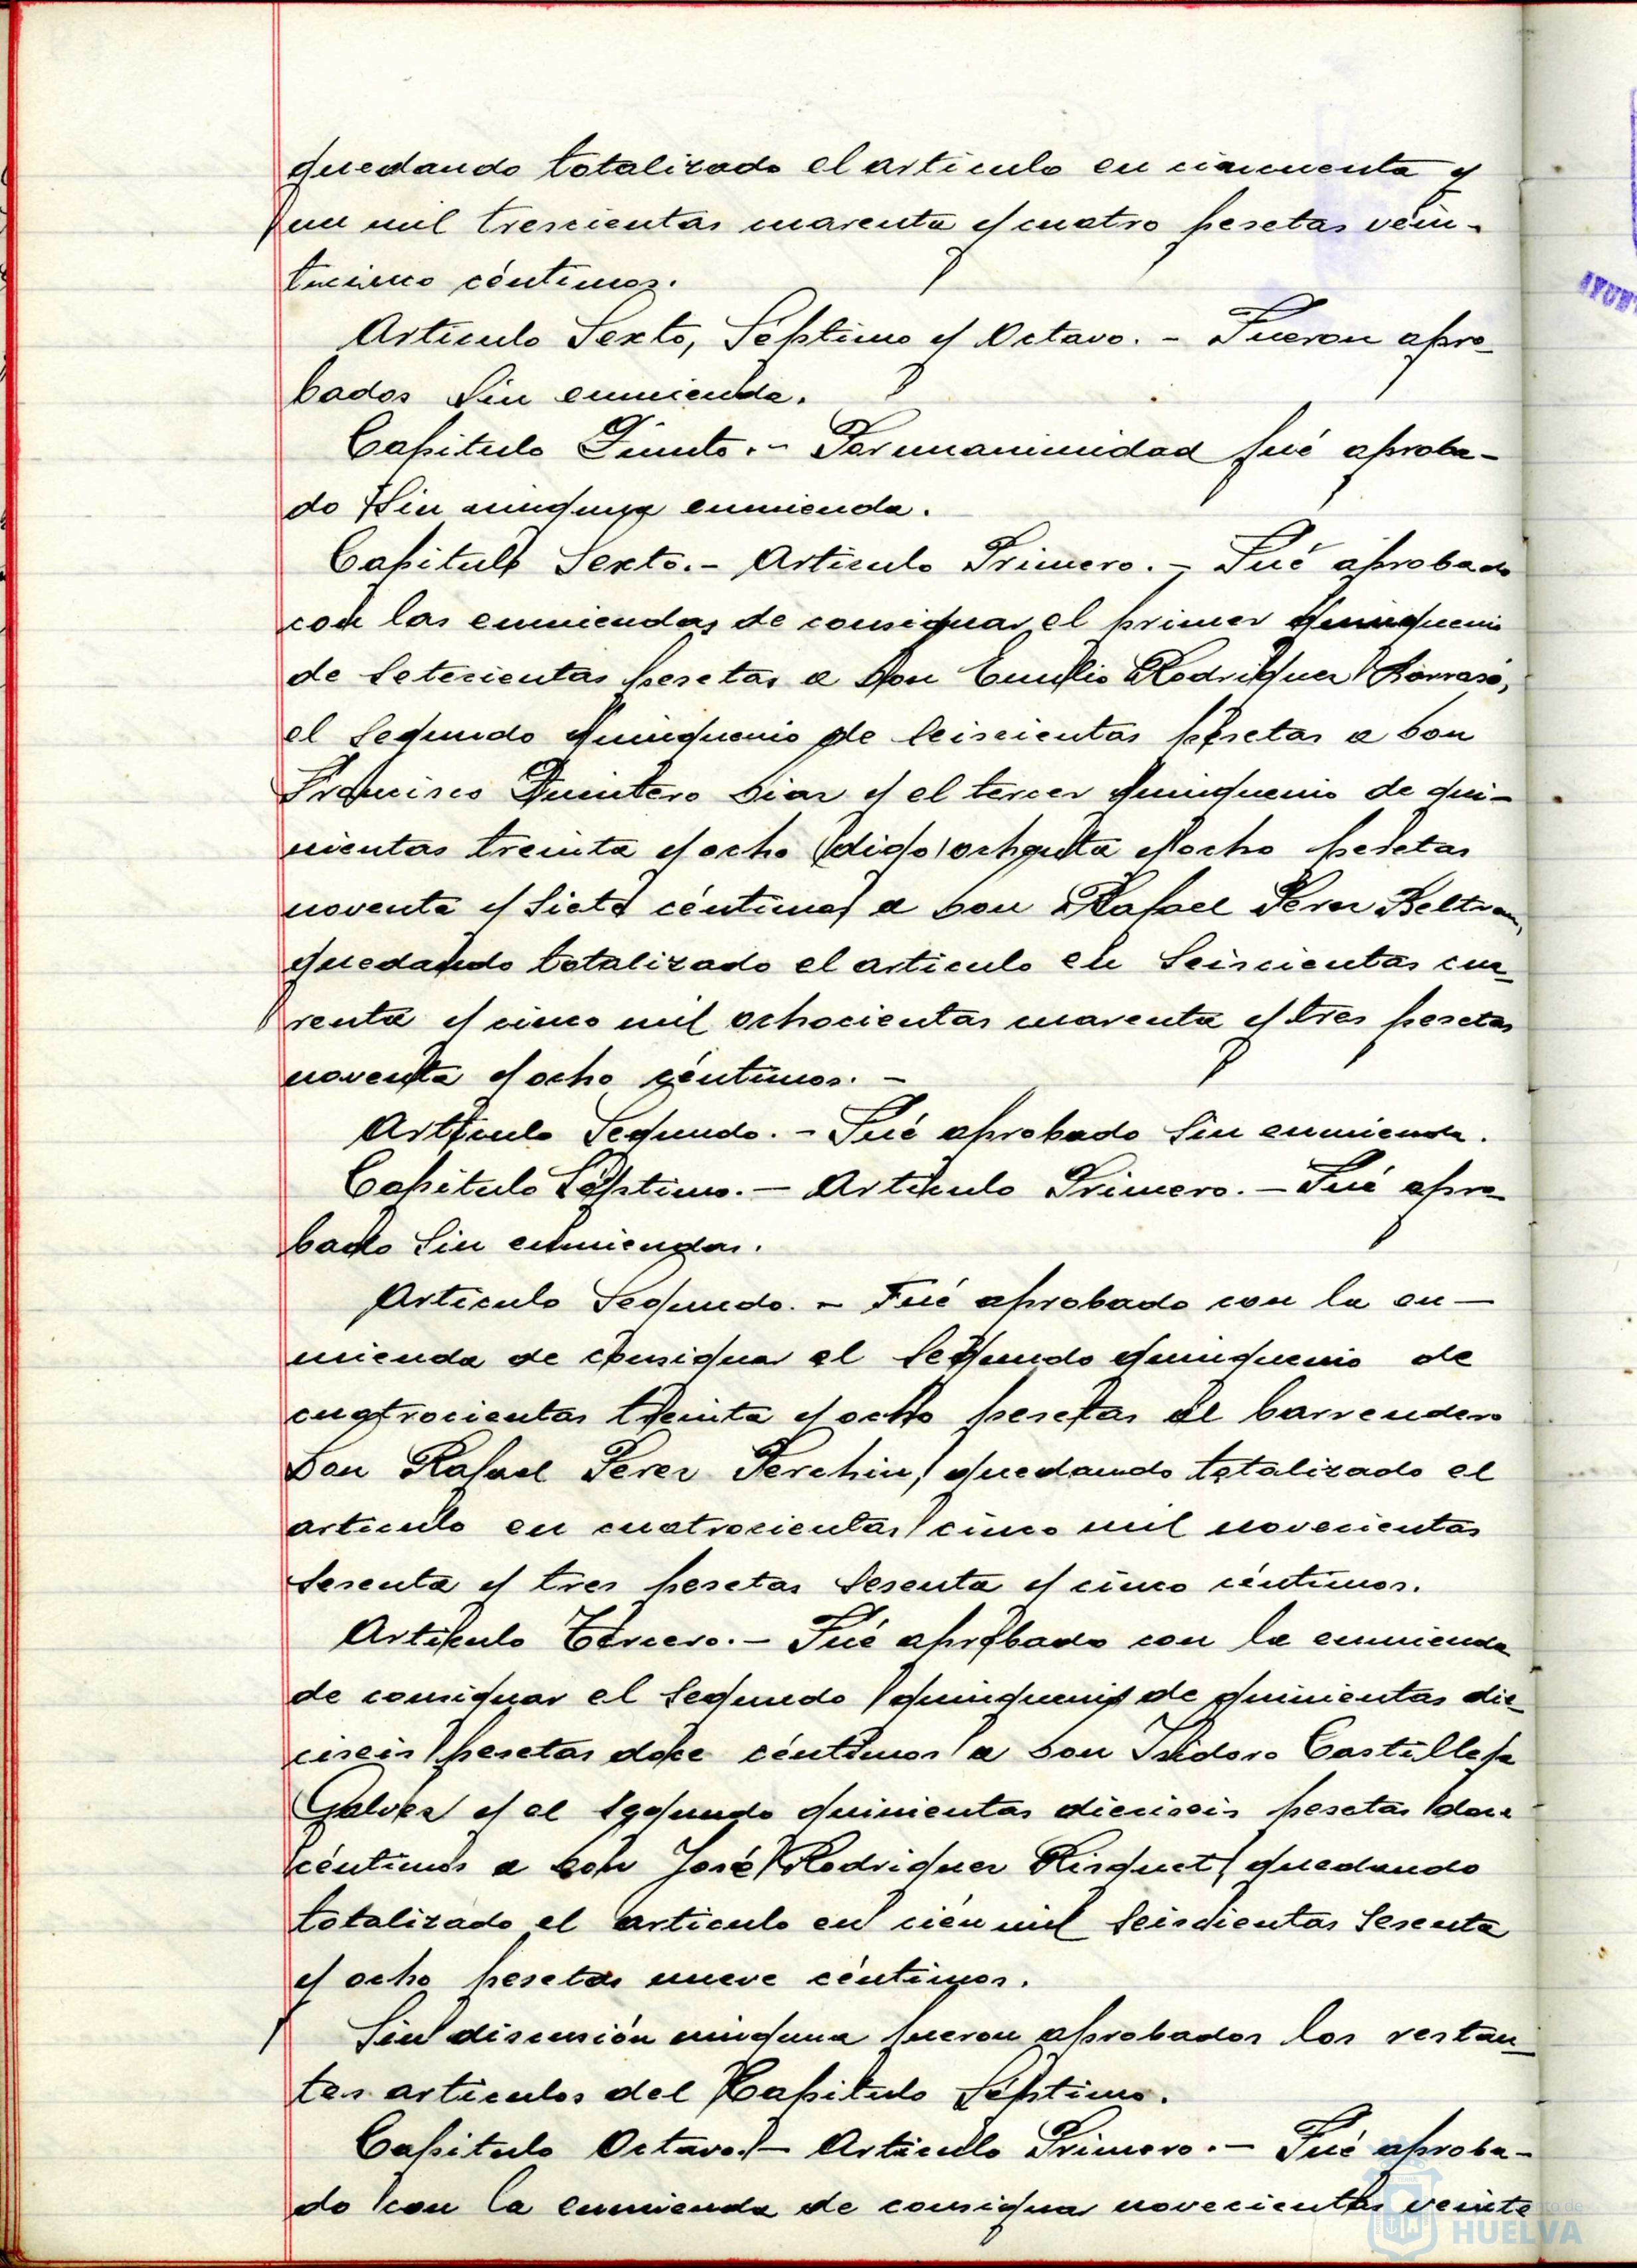 quedando totalizado el articulo en cincuenta y
un mil trescientas cuarenta y cuatro pesetas vein-
ticinco céntimos.
Articulo Sexto, Séptimo y Octavo. - Fueron apro-
bados sin enmienda.
Capitulo Quinto. - Por unanimidad fué aproba-
do sin ninguna enmienda.
Capitulo Sexto. - Articulo Primero. - Fué aprobado
con las enmiendas de consignar el primer quinquenio
de setecientas pesetas a Don Emilio Rodriguez
el segundo quinquenio de seiscientas pesetas a Don
Francisco Quintero Diaz y el tercer quinquenio de qui-
nientas treinta y ocho (digo) ochenta y ocho pesetas
noventa y siete céntimos a Don Rafael Perez Beltran,
quedando totalizado el articulo en seiscientas cua-
renta y cinco mil ochocientas cuarenta y tres pesetas
noventa y ocho céntimos. -
Articulo Segundo. - Fué aprobado sin enmienda.
Capitulo Séptimo. - Articulo Primero. - Fué apro-
bado sin enmiendas.
Articulo Segundo. - Fué aprobado con la en-
mienda de consignar el segundo quinquenio de
cuatrocientas treinta y ocho pesetas al barrendero
Don Rafael Perez Perchin, quedando totalizado el
articulo en cuatrocientas cinco mil novecientas
sesenta y tres pesetas sesenta y cinco céntimos.
Articulo Tercero. - Fué aprobado con la enmienda
de consignar el segundo quinquenio de quinientas die-
ciseis pesetas doce céntimos a Don Isidoro Castilleja
Galvez y el segundo quinientas dieciseis pesetas doce
céntimos a Don José Rodriguez Risquet, quedando
totalizado el articulo en cién mil seiscientas sesenta
y ocho pesetas nueve céntimos.
Sin discusión ninguna fueron aprobados los restan-
tes articulos del Capitulo Séptimo.
Capitulo Octavo. - Articulo Primero. - Fué aproba-
do con la enmienda de consignar novecientas veinte
HUELVA